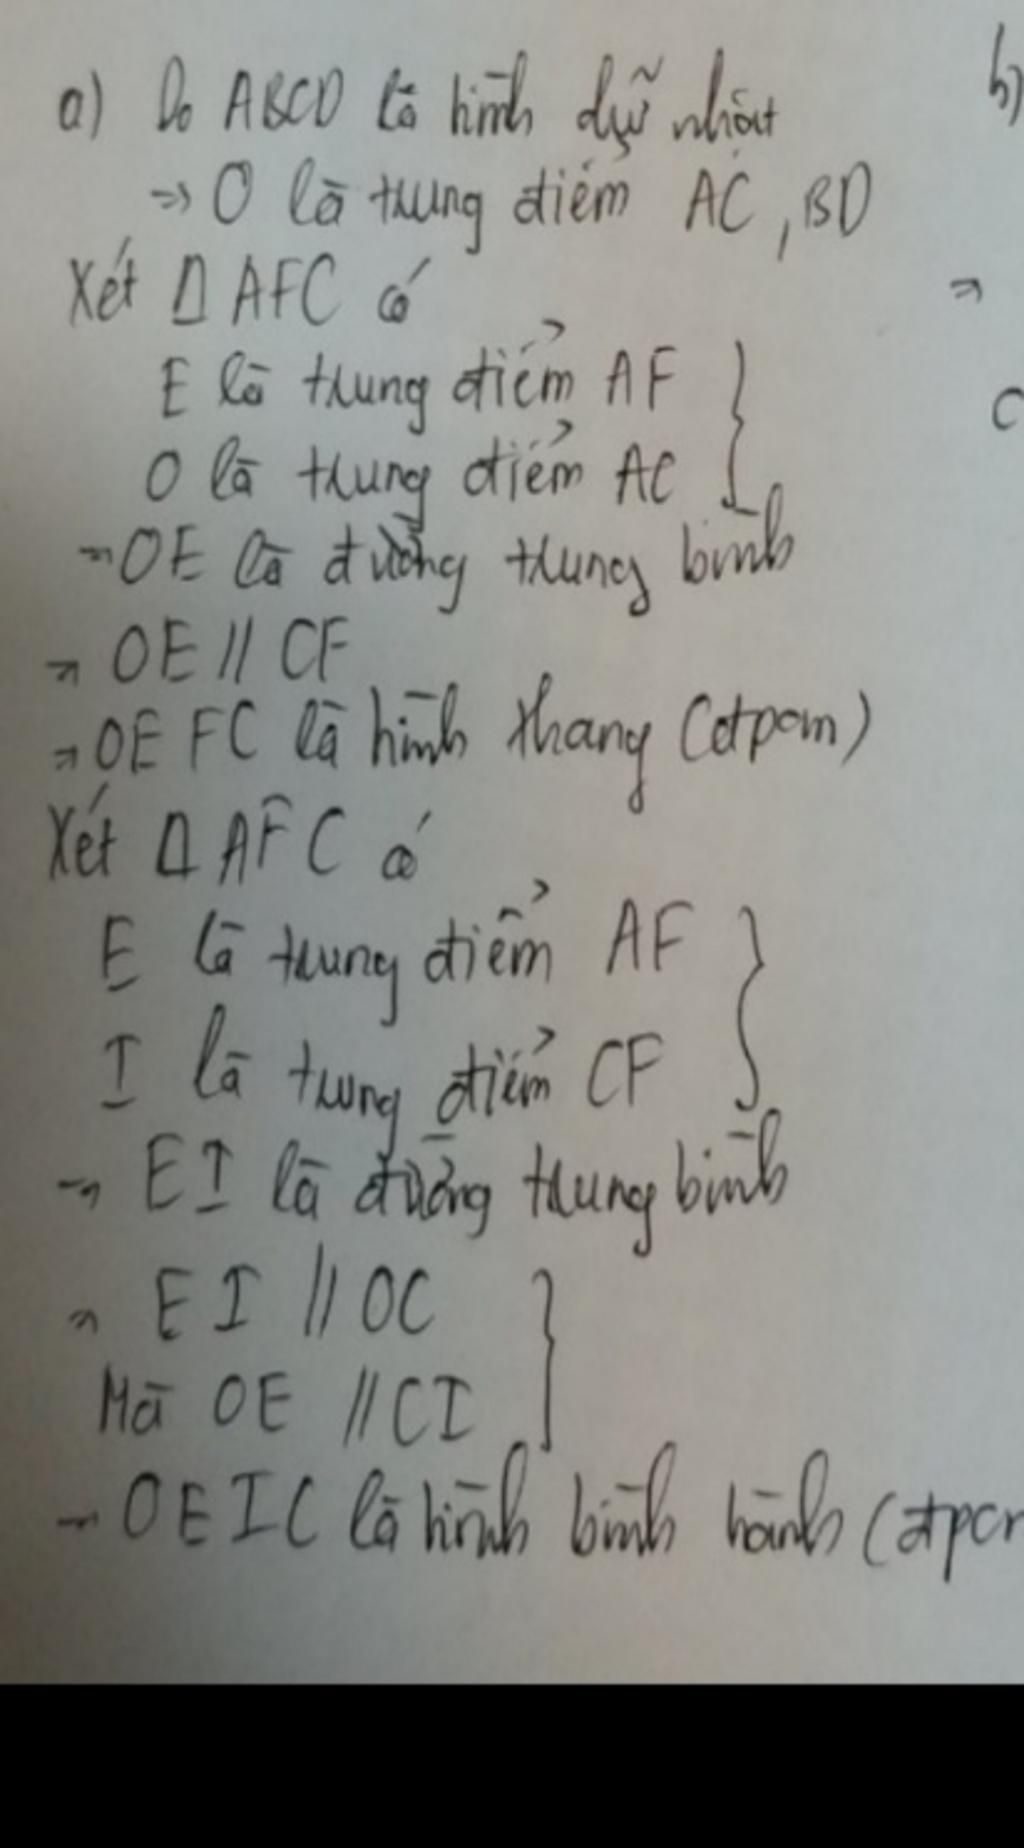 a) Do ABCD là hình chữ nhật
=> O là trung điểm AC, BD
Xét Δ AFC có
E là trung điểm AF
O là trung điểm AC
=> OE là đường trung bình
=> OE // CF
=> OEFC là hình thang (đpcm)
Xét Δ AFC có
E là trung điểm AF
I là trung điểm CF
=> EI là đường trung bình
=> EI // OC
Mà OE // CI
=> OEIC là hình bình hành (đpcm
b)
=>
C